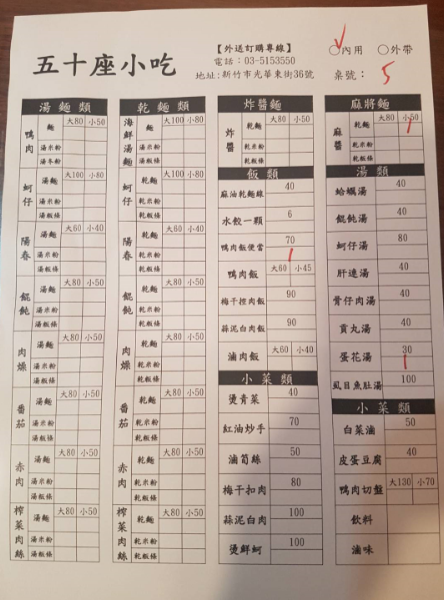 五十座小吃
【外送訂購專線】
電話：03-5153550
地址:新竹市光華東街36號
○內用 ○外帶
桌號： 5
湯麵類
鴨肉 麵 大80 小50
湯米粉
湯冬粉
蚵仔 湯麵 大100 小80
湯米粉
湯粄條
陽春 湯麵 大60 小40
湯米粉
湯粄條
餛飩 湯麵 大80 小50
湯米粉
湯粄條
肉燥 湯麵 大80 小50
湯米粉
湯粄條
番茄 湯麵 大80 小50
湯米粉
湯粄條
赤肉 湯麵 大80 小50
湯米粉
湯粄條
榨菜肉絲 湯麵 大80 小50
湯米粉
湯粄條
乾麵類
海鮮湯麵 麵 大100 小80
湯米粉
湯粄條
蚵仔 乾麵 大100 小80
乾米粉
乾粄條
陽春 乾麵 大60 小40
乾米粉
乾粄條
餛飩 乾麵 大80 小50
乾米粉
乾粄條
肉燥 乾麵 大80 小50
乾米粉
乾粄條
番茄 乾麵 大80 小50
乾米粉
乾粄條
赤肉 乾麵 大80 小50
乾米粉
乾粄條
榨菜肉絲 乾麵 大80 小50
乾米粉
乾粄條
炸醬麵
炸醬 乾麵 大80 小50
乾米粉
乾粄條
飯類
麻油乾麵線 40
水餃一顆 6
鴨肉飯便當 70
鴨肉飯 大60 小45
梅干控肉飯 90
蒜泥白肉飯 90
滷肉飯 大60 小40
小菜類
燙青菜 40
紅油炒手 70
滷筍絲 50
梅干扣肉 80
蒜泥白肉 100
燙鮮蚵 100
麻將麵
麻醬 乾麵 大80 小50
乾米粉
乾粄條
湯類
蛤蠣湯 40
餛飩湯 40
蚵仔湯 80
肝連湯 40
骨仔肉湯 40
貢丸湯 40
蛋花湯 30
虱目魚肚湯 100
小菜類
白菜滷 50
皮蛋豆腐 40
鴨肉切盤 大130 小70
飲料
滷味